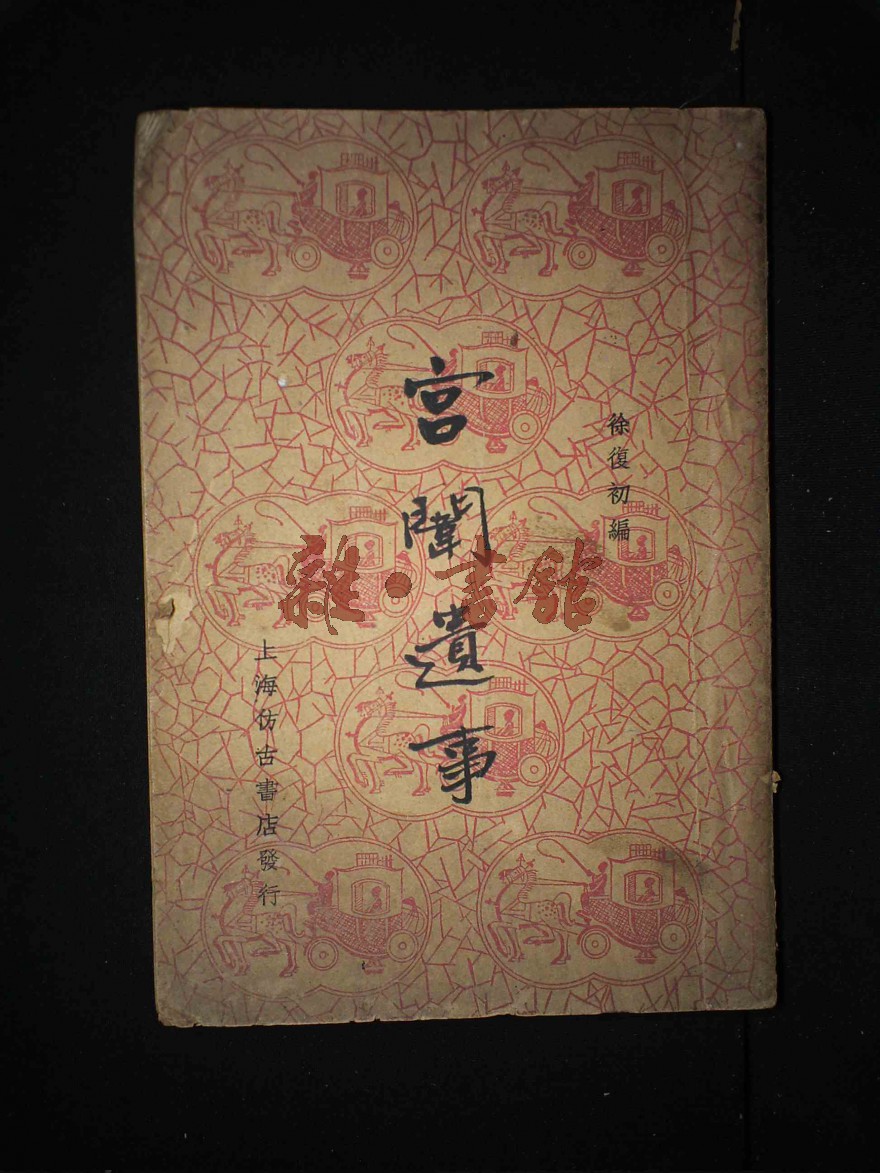 徐復初編
宮闈遺事
上海仿古書店發行
雜·書館